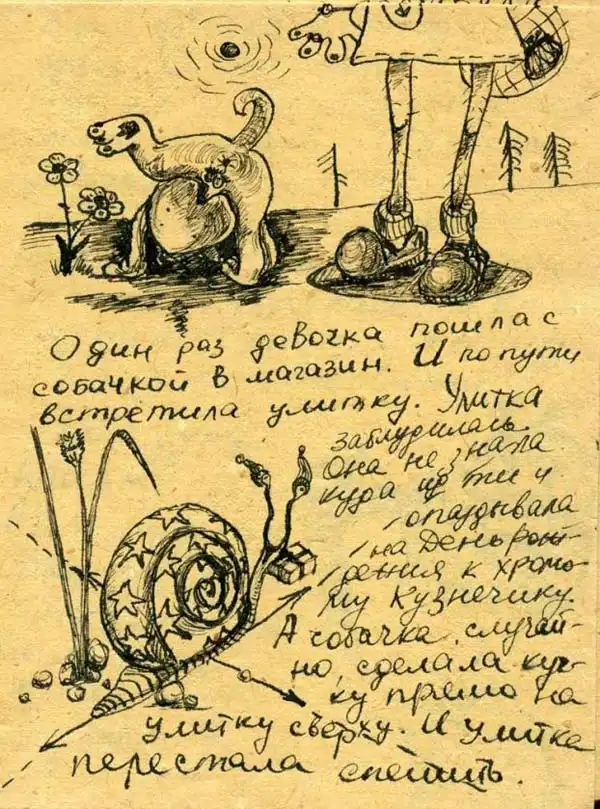 Один раз девочка пошла с
собачкой в магазин. И по пути
встретила улитку. Улитка
заблудилась.
Она не знала
куда идти и
опаздывала
на День рож-
дения к хромо-
му кузнечику.
А собачка, случай-
но, сделала куч-
ку прямо на
улитку сверху. И улитка
перестала спешить.